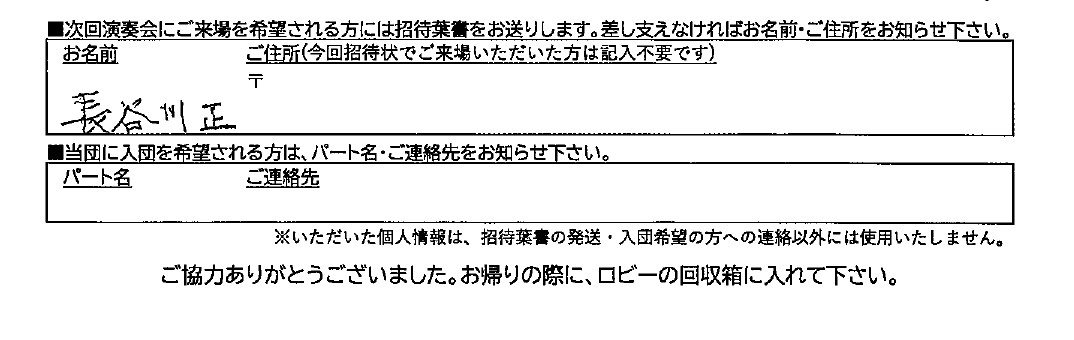 ■次回演奏会にご来場を希望される方には招待葉書をお送りします。差し支えなければお名前・ご住所をお知らせ下さい。
お名前 ご住所(今回招待状でご来場いただいた方は記入不要です)
〒
長谷川正
■当団に入団を希望される方は、パート名・ご連絡先をお知らせ下さい。
パート名 ご連絡先
※いただいた個人情報は、招待葉書の発送・入団希望の方への連絡以外には使用いたしません。
ご協力ありがとうございました。お帰りの際に、ロビーの回収箱に入れて下さい。